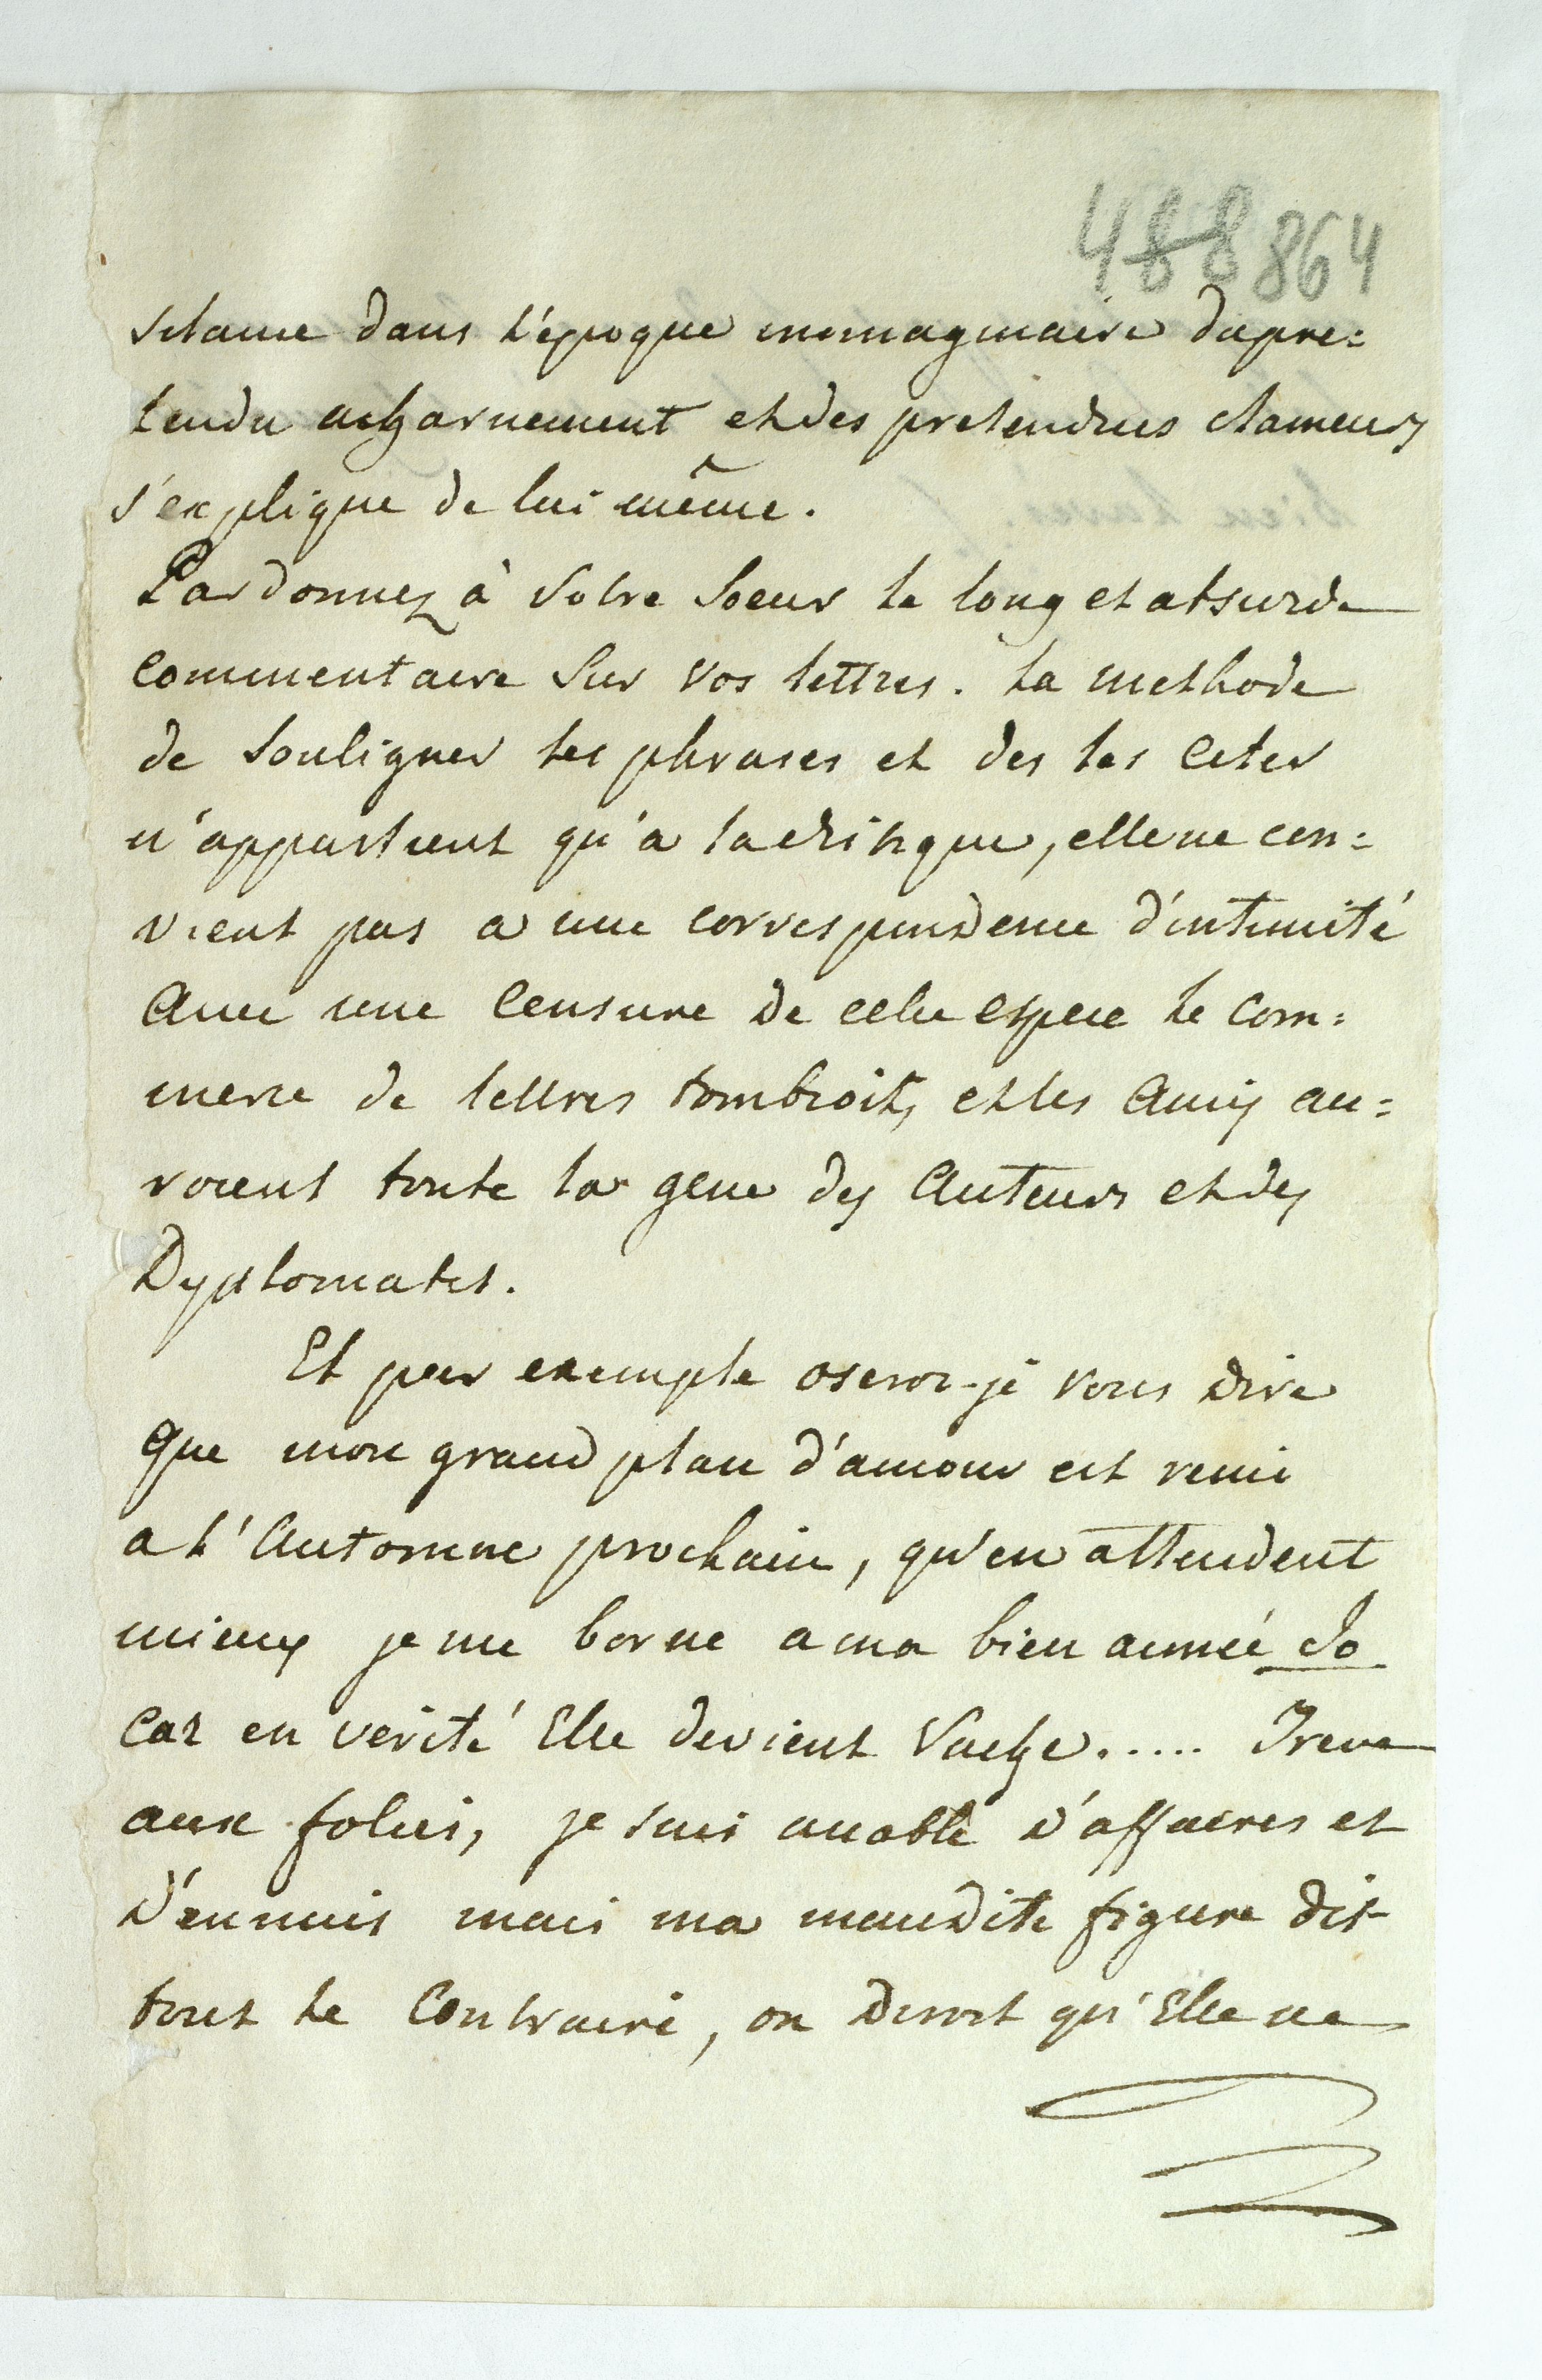 488 864
dans l'epoque immaginaire du pre=
tendu acharnement et des pretendues clameurs
s'explique de lui même.
Pardonnez à Votre Soeur le long et absurde
commentaire Sur vos lettres. la methode
de Souligner les phrases et des les citer
n'appartient qu'a la critique, elle ne con=
vient pas a une correspondence d'intimité
Avec une Censure de cette espece le com=
merce de lettres tombroit, et les Amis au=
roient toute la gene des Auteurs et des
Dyplomates.
Et par exemple oseroi-je vous dire
que mon grand plan d'amour est remi
a l'Automne prochain, qu'en attendent
mieux je me borne a ma bien aimeé Io
car en verité Elle devient Vache..... Treve
aux folies, je suis accablé d'affaires et
d'ennuis mais ma maudite figure dit
tout le Contraire, on diroit qu'Elle ne